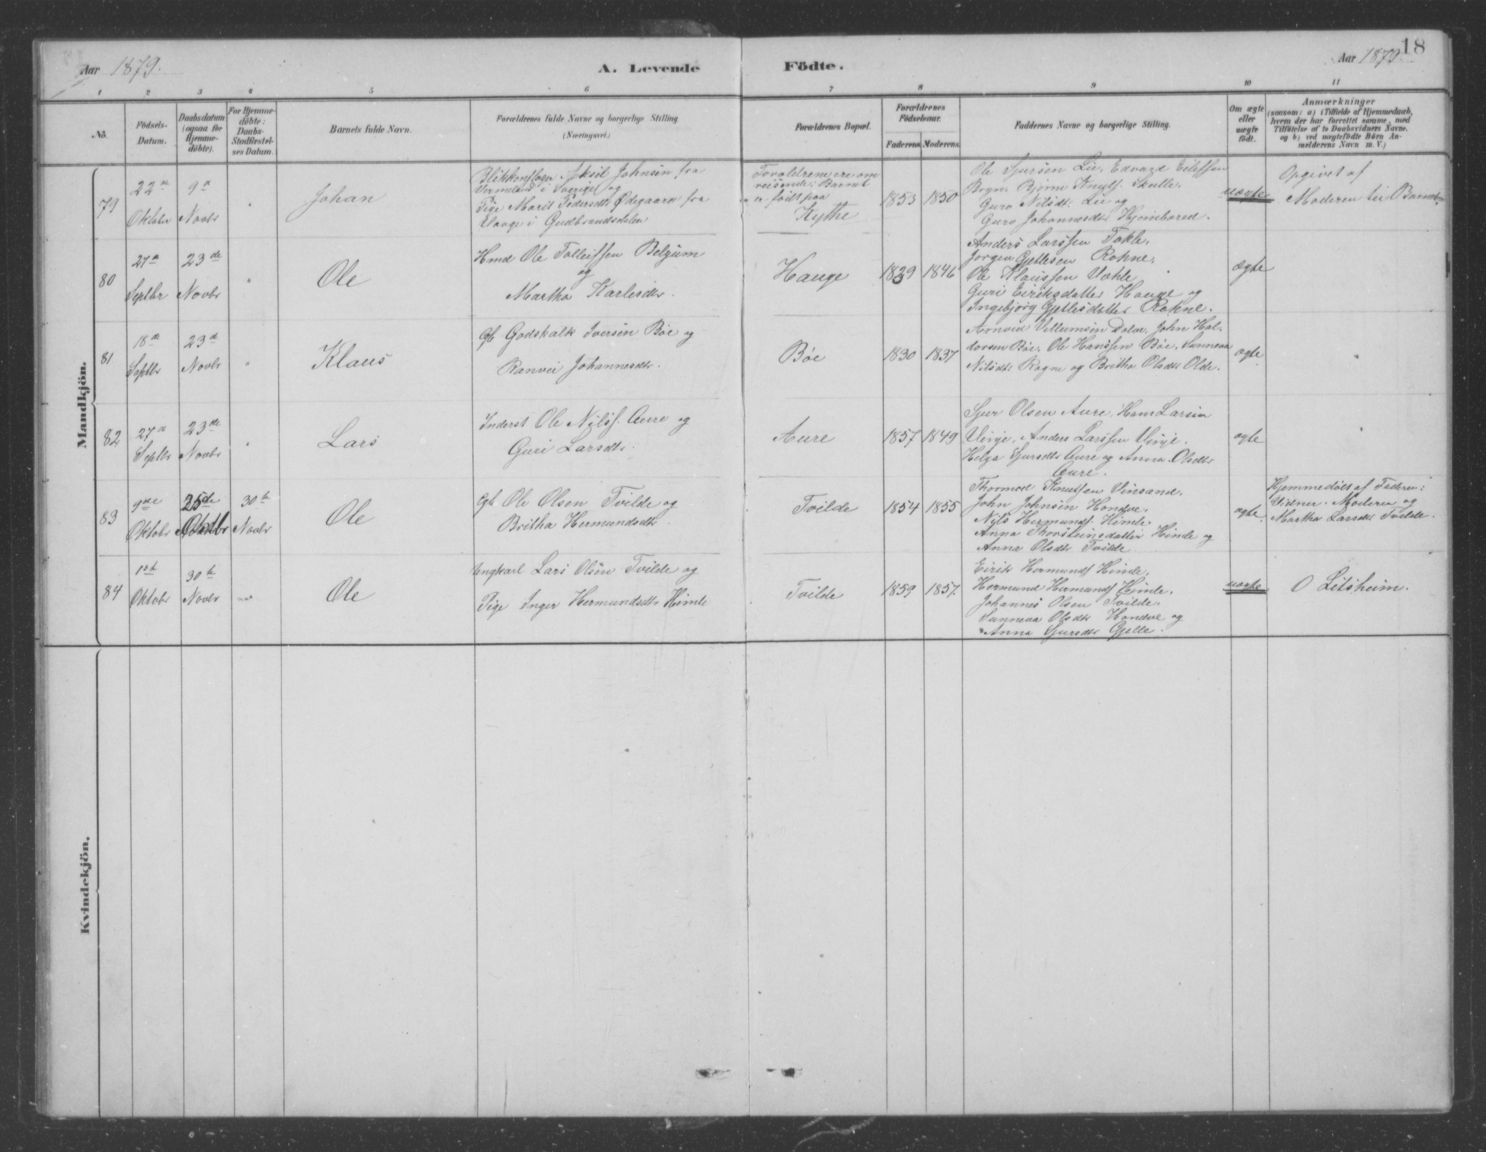 18
Aar 1879.
A. Levende Födte.
Aar 1879
1 2 3 4 5 6 7 8 9 10 11
No.
Födsels-
Datum.
Daabsdatum
(ogsaa for
Hjemme-
döbte).
For Hjemme-
döbte:
Daabs-
Stadfæstel-
ses Datum.
Barnets fulde Navn.
Forældrenes fulde Navne og borgerlige Stilling
(Næringsvei.)
Forældrenes Bopæl.
Forældrenes
Födselsaar.
Faderens. Moderens.
Faddernes Navne og borgerlige Stilling.
Om ægte
eller
uægte
födt.
Anmærkninger
(saasom: a) i Tilfælde af Hjemmedaab,
hvem der har forrettet samme, med
Tilföielse af to Daabsvidners Navne,
og b) ved uægtefödte Börn An-
melderens Navn m. V.)
Mandkjön.
79
22
Oktober
9
Novbr
Johan
Johnsen fra
i Sverige og
Pige Marit Pedersdtr Ödegaarn fra
i Gudbrandsdalen
Forældrene ere om-
reisende. Barnet
er födt paa
Kytte
1853 1850
Ole Sjursen Lie, Edvard Eilefsen
Bryn, Björne Knuts. Skulle,
Guro Nilsdtr. Lie og
Guro Johannesdtr
uægte
Opgivet af
Moderen til Barnet
80
27
Septbr
23de
Novbr
Ole
Hmd Ole Tolleifsen Belgum
og
Martha Karlesdtr.
Hauge
1839 1846
Anders Larssen Takle,
Jorgen Gjellesen Rokne,
Ole Klaussen
Guri Eiriksdatter Hauge og
Ingebjörg Gjellesdatter Rokne.
ægte
81
18de
Septbr
23de
Novbr
Klaus
Gb Godskalk Iversen Böe og
Ranvei Johannesdtr.
Böe
1830 1837
Arnved Villumsen John Hal-
dorsen Böe, Ole Hanssen Böe, Sunneva
Nilsdtr Rogne og Britha Olsdtr Olde.
ægte
82
27
Septbr
23de
Novbr
Lars
Inderst Ole Nilss. Aure og
Guri Larsdtr.
Aure
1857 1849
Sjur Olsen Aure, Hans Larsen
Anders Larssen
Helga Sjursdtr Aure og Anna Olsdtr
Aure.
ægte
83
9de
Oktobr
25de
Oktobr
30te
Novbr
Ole
Gb Ole Olsen Tvilde og
Britha Hermundsdtr.
Tvilde
1854 1855
Thormod Knutsen Vinsand,
John Johnsen Hondve,
Nils Hermunds. Himle
Anna Thorsteinsdatter Himle og
Anna Olsdtr Tvilde
ægte
Hjemmedöbt af Faderen:
Vidner: Moderen og
Martha Larsdtr Tvilde.
84
1st
Oktobr
30te
Novbr
Ole
Ungkarl Lars Olsen Tvilde og
Pige Inger Hermundsdtr Himle
Tvilde
1859 1857
Eirik Hermunds. Himle,
Hermund Hermunds. Himle,
Johannes Olsen Tvilde,
Sunneva Olsdtr Hondve og
Anna Sjursdtr Gjelle.
uægte
O Litsheim.
Kvindekjön.